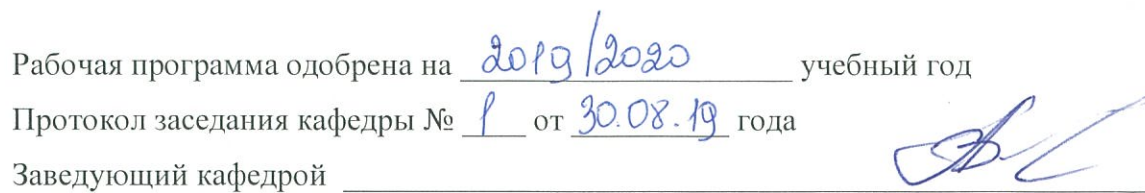 Рабочая программа одобрена на 2019/2020 учебный год
Протокол заседания кафедры № 1 от 30.08.19 года
Заведующий кафедрой